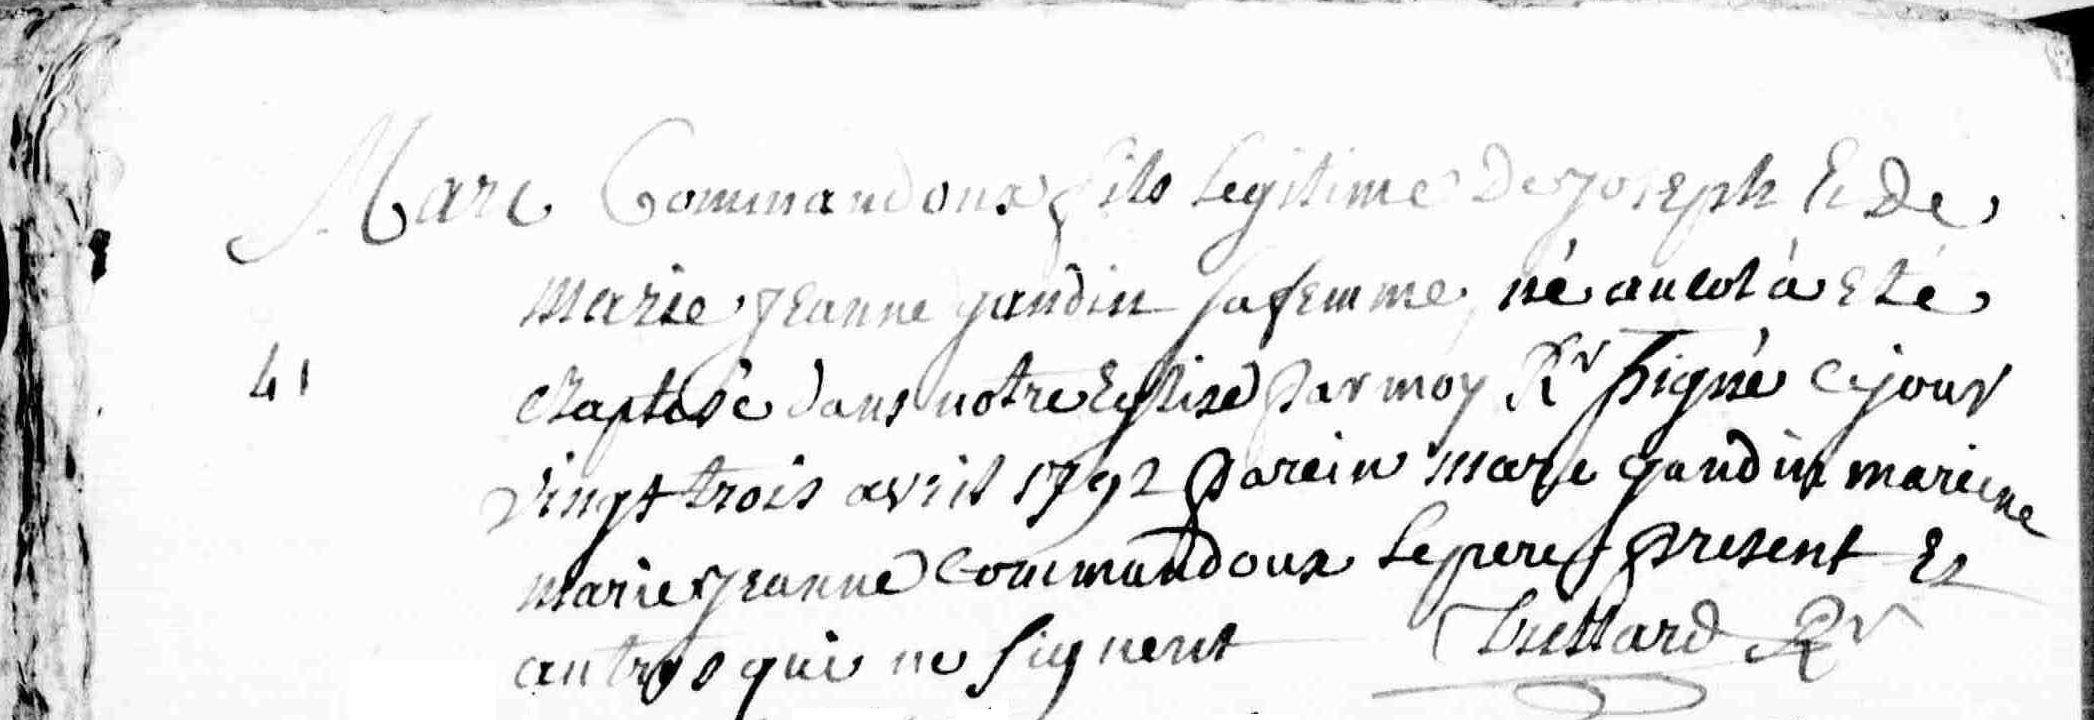 Marc Commandoux fils legitime De joseph Et De
marie jeanne gandin sa femme, né au col à Eté
Baptisé dans notre Eglise par moy Rr signé Ce jour
41
vingt trois avril 1792 parein marc gandin mareine
marie jeanne Commandoux Le pere present Et
autres qui ne signent Rr